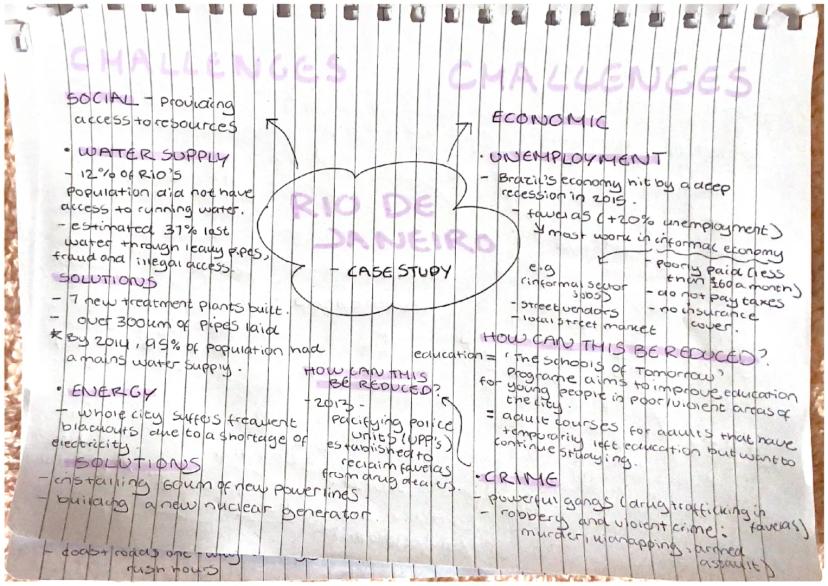 CHALLENGES
SOCIAL - providing
access to resources
• WATER SUPPLY
- 12% of RIO'S
population did not have
access to running water.
- estimated 37% lost
water through leaky pipes,
fraud and illegal access.
SOLUTIONS
- 7 new treatment plants built.
- over 300km of pipes laid
* By 2014, 95% of population had
a mains water supply.
• ENERGY
- whole city suffers frequent
blackouts due to a shortage of
electricity.
SOLUTIONS
- installing 60km of new power lines.
- building a new nuclear generator
RIO DE
JANEIRO
- CASE STUDY
HOW CAN THIS
BE REDUCED?
- 2013 -
pacifying police
units (UPP's)
established to
reclaim favelas
from drug dealers.
CHALLENGES
ECONOMIC
• UNEMPLOYMENT
- Brazil's economy hit by a deep
recession in 2015.
- favelas (+20% unemployment)
↳ most work in informal economy
e.g
(informal sector
jobs)
- street vendors
- local street market
- poorly paid (less
than £60 a month)
- do not pay taxes
- no insurance
cover.
HOW CAN THIS BE REDUCED?
education = 'The schools of Tomorrow'
Programe aims to improve education
for young people in poor/violent areas of
the city.
= adult courses for adults that have
temporarily left education but want to
continue studying.
• CRIME
- powerful gangs (drug trafficking in
favelas)
- robbery and violent crime:
murder, kidnapping, armed
assault)
rush hours